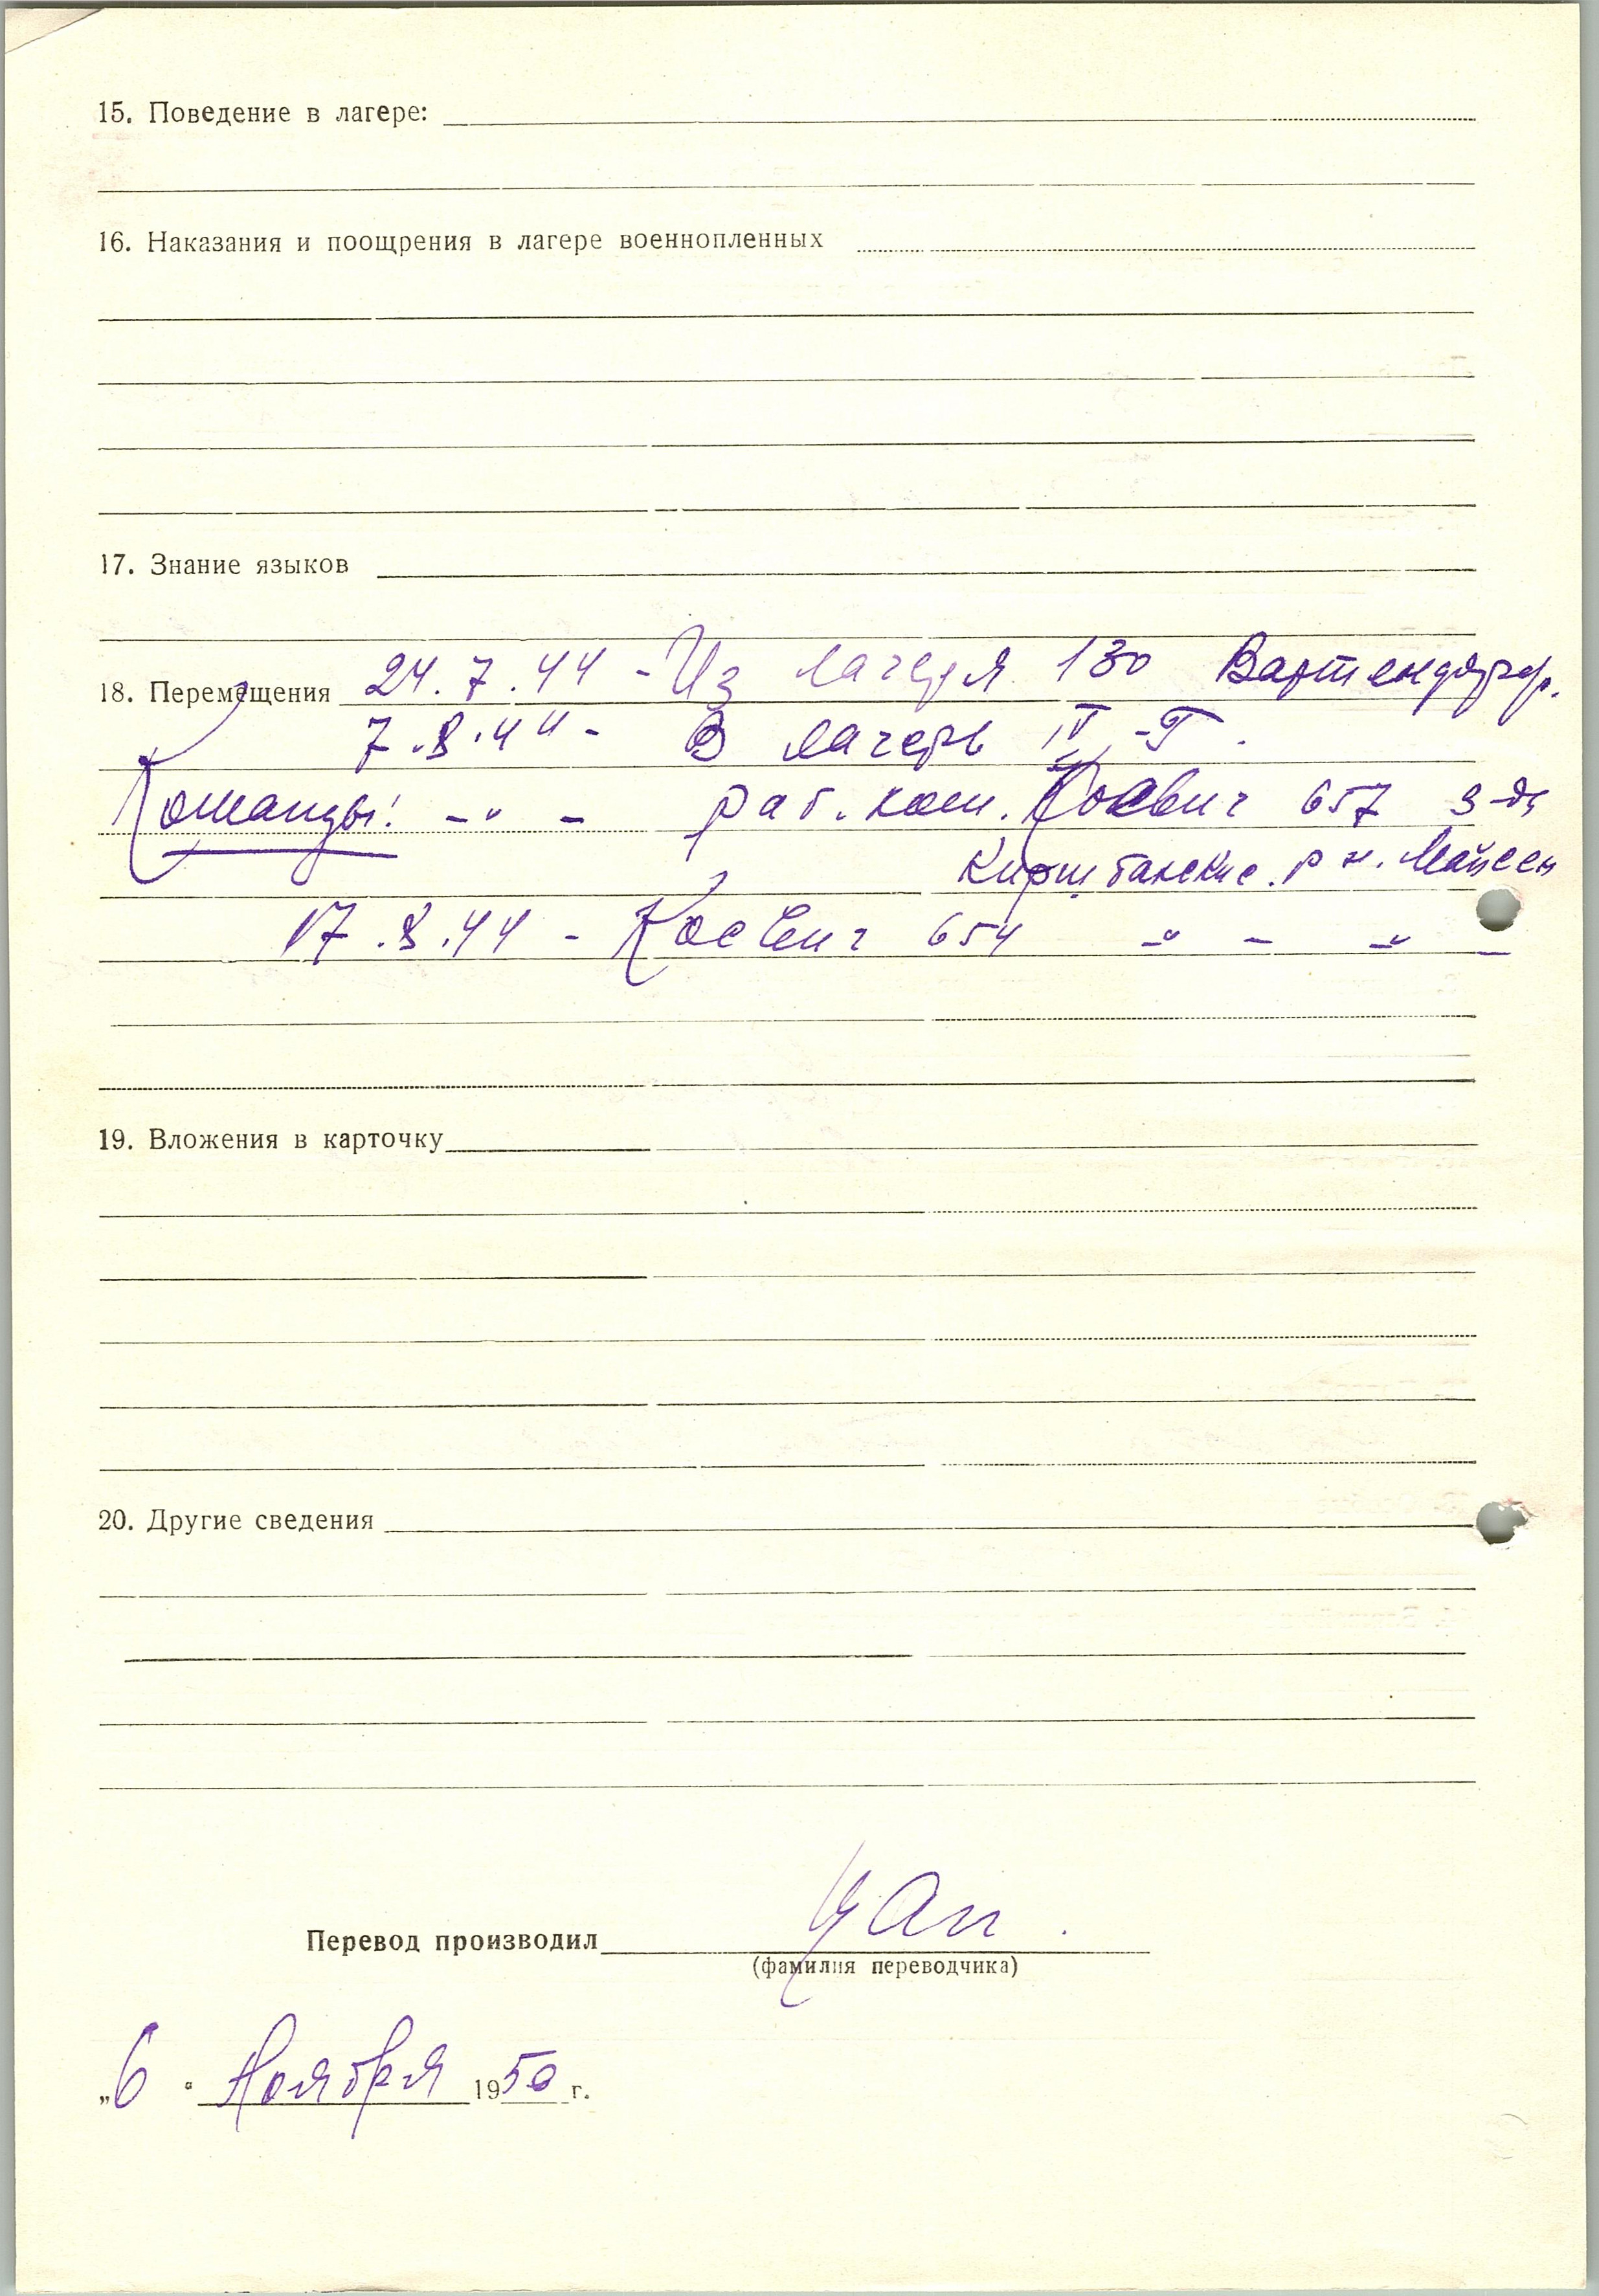 15. Поведение в лагере:
16. Наказания и поощрения в лагере военнопленных
17. Знание языков
18. Перемещения 24.7.44 - Из лагеря 130 Вартендорф.
7.8.44 - В лагерь IV-Г.
Команды: -"- раб. ком. Косвиг 657 з-д
р-н. Майсен
17.8.44 - Косвиг 654 -"- -"-
19. Вложения в карточку
20. Другие сведения
Перевод производил
(фамилия переводчика)
„6" Ноября 1950 г.